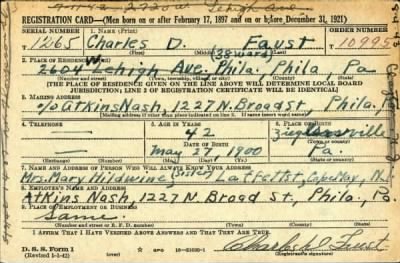 REGISTRATION CARD—(Men born on or after February 17, 1897 and on or before December 31, 1921)
SERIAL NUMBER 1. NAME (Print) ORDER NUMBER
1265 Charles D. Faust 10995
(First) (Middle) (Last)
2. PLACE OF RESIDENCE (Print) (38 ward)
2604 W Lehigh Ave. Phila, Phila, Pa
(Number and street) (Town, township, village, or city) (County) (State)
[THE PLACE OF RESIDENCE GIVEN ON THE LINE ABOVE WILL DETERMINE LOCAL BOARD
JURISDICTION; LINE 2 OF REGISTRATION CERTIFICATE WILL BE IDENTICAL]
3. MAILING ADDRESS
c/o Atkins Nash, 1227 N. Broad St, Phila.
[Mailing address if other than place indicated on line 2. If same insert word same]
4. TELEPHONE 5. AGE IN YEARS 6. PLACE OF BIRTH
42 Zieglersville
DATE OF BIRTH (Town or county)
May 27 1900 Pa.
(Exchange) (Number) (Mo.) (Day) (Yr.) (State or country)
7. NAME AND ADDRESS OF PERSON WHO WILL ALWAYS KNOW YOUR ADDRESS
Mrs. Mary (Sister) Cape May, N.J.
8. EMPLOYER'S NAME AND ADDRESS
Atkins Nash, 1227 N Broad St., Phila., Pa.
9. PLACE OF EMPLOYMENT OR BUSINESS
Same.
(Number and street or R. F. D. number) (Town) (County) (State)
I AFFIRM THAT I HAVE VERIFIED ABOVE ANSWERS AND THAT THEY ARE TRUE.
D. S. S. Form 1
(Revised 1-1-42)
Charles D Faust
(Registrant's signature)